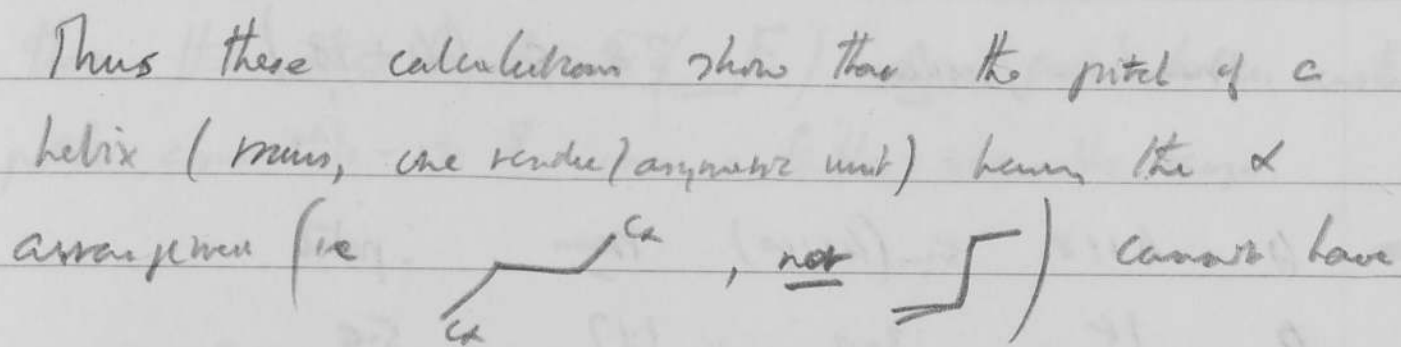 Thus these calculations show that the pitch of a
helix (trans, one residue/asymmetric unit) having the α
arrangement (ie Cα Cα , not ) cannot have